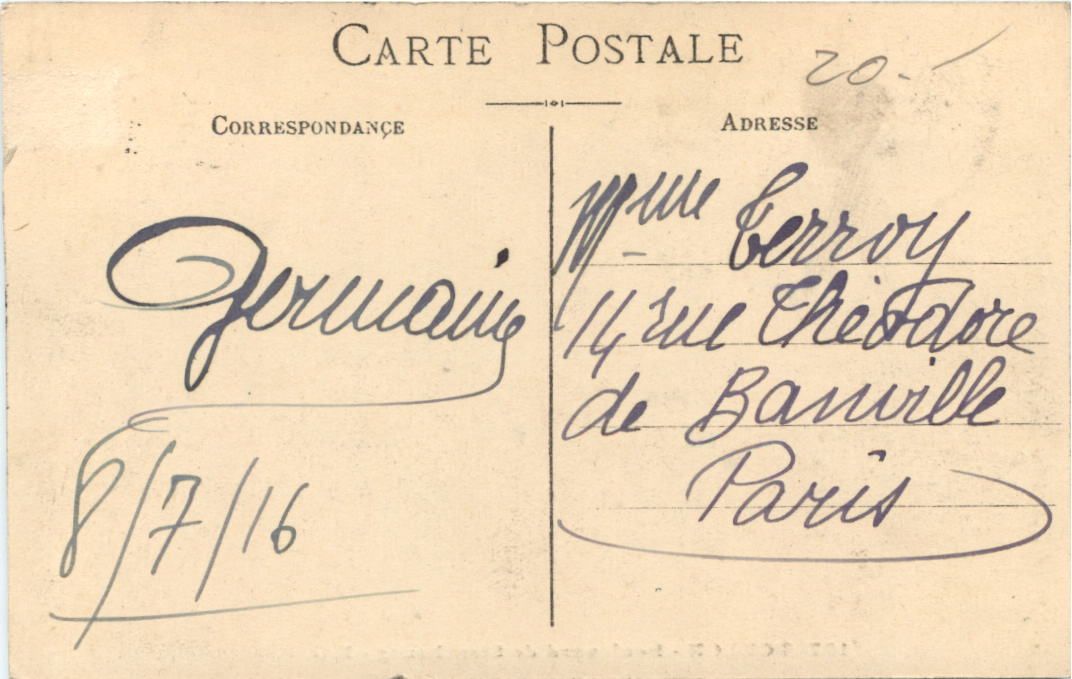 CARTE POSTALE
20.-
CORRESPONDANCE
ADRESSE
Germaine
8/7/16
Mme Terroy
14 rue Théodore
de Banville
Paris